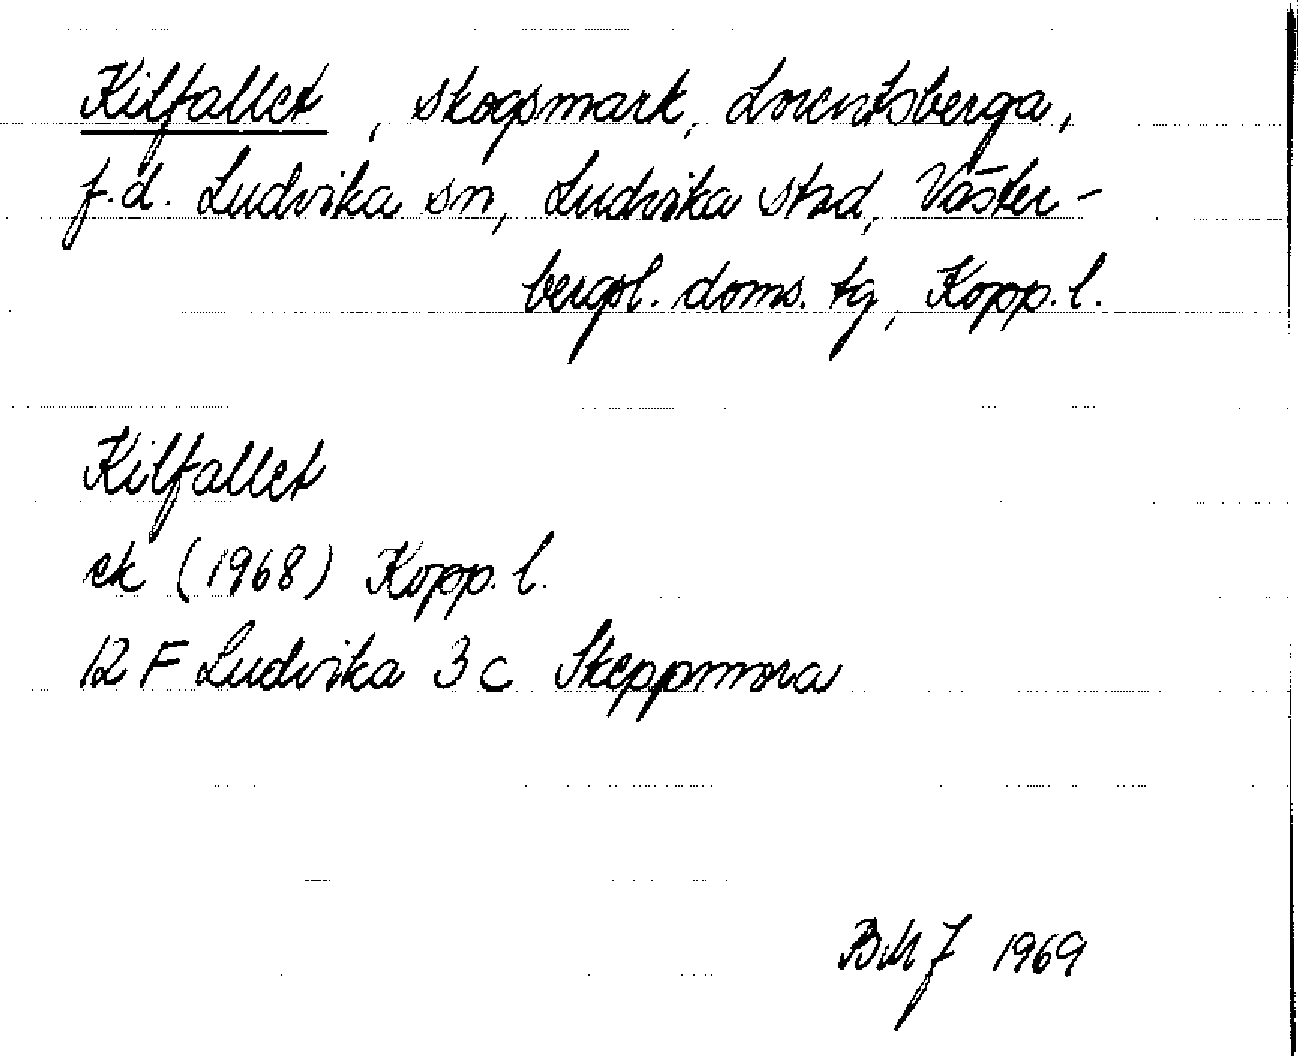 Kilfallet, skogsmark, Lorentsberga,
f.d. Ludvika sn, Ludvika stad, Väster-
bergsl. doms. tg, Kopp. l.
Kilfallet
ek (1968) Kopp. l.
12 F Ludvika 3 c Skeppmora
BMJ 1969